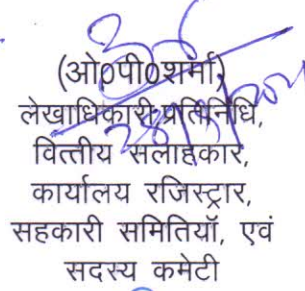 (ओ0पी0शर्मा)
लेखाधिकारी/प्रतिनिधि,
वित्तीय सलाहकार,
कार्यालय रजिस्ट्रार,
सहकारी समितियॉ, एवं
सदस्य कमेटी